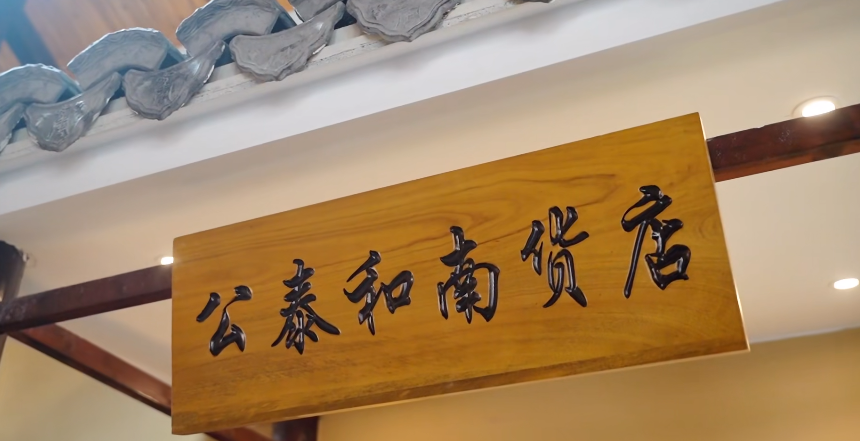 公泰和南货店